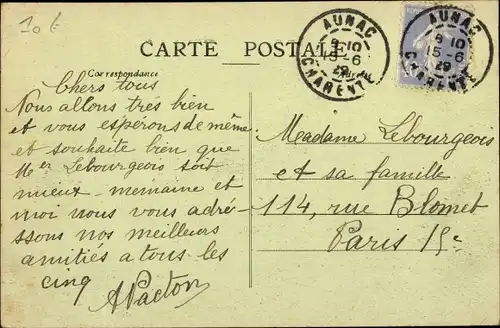 10 f
CARTE POSTALE
Correspondance
AUNAC
8 10
15-6
29
CHARENTE
AUNAC
8 10
15-6
29
CHARENTE
Chers tous
Nous allons tres bien
et vous espérons de même
et souhaite bien que
Mer Lebourgeois soit
mieux - memaine et
moi nous vous adré-
ssons nos meilleurs
amitiés a tous les
cinq
APacton
Madame Lebourgeois
et sa famille
114, rue Blomet
Paris 15e